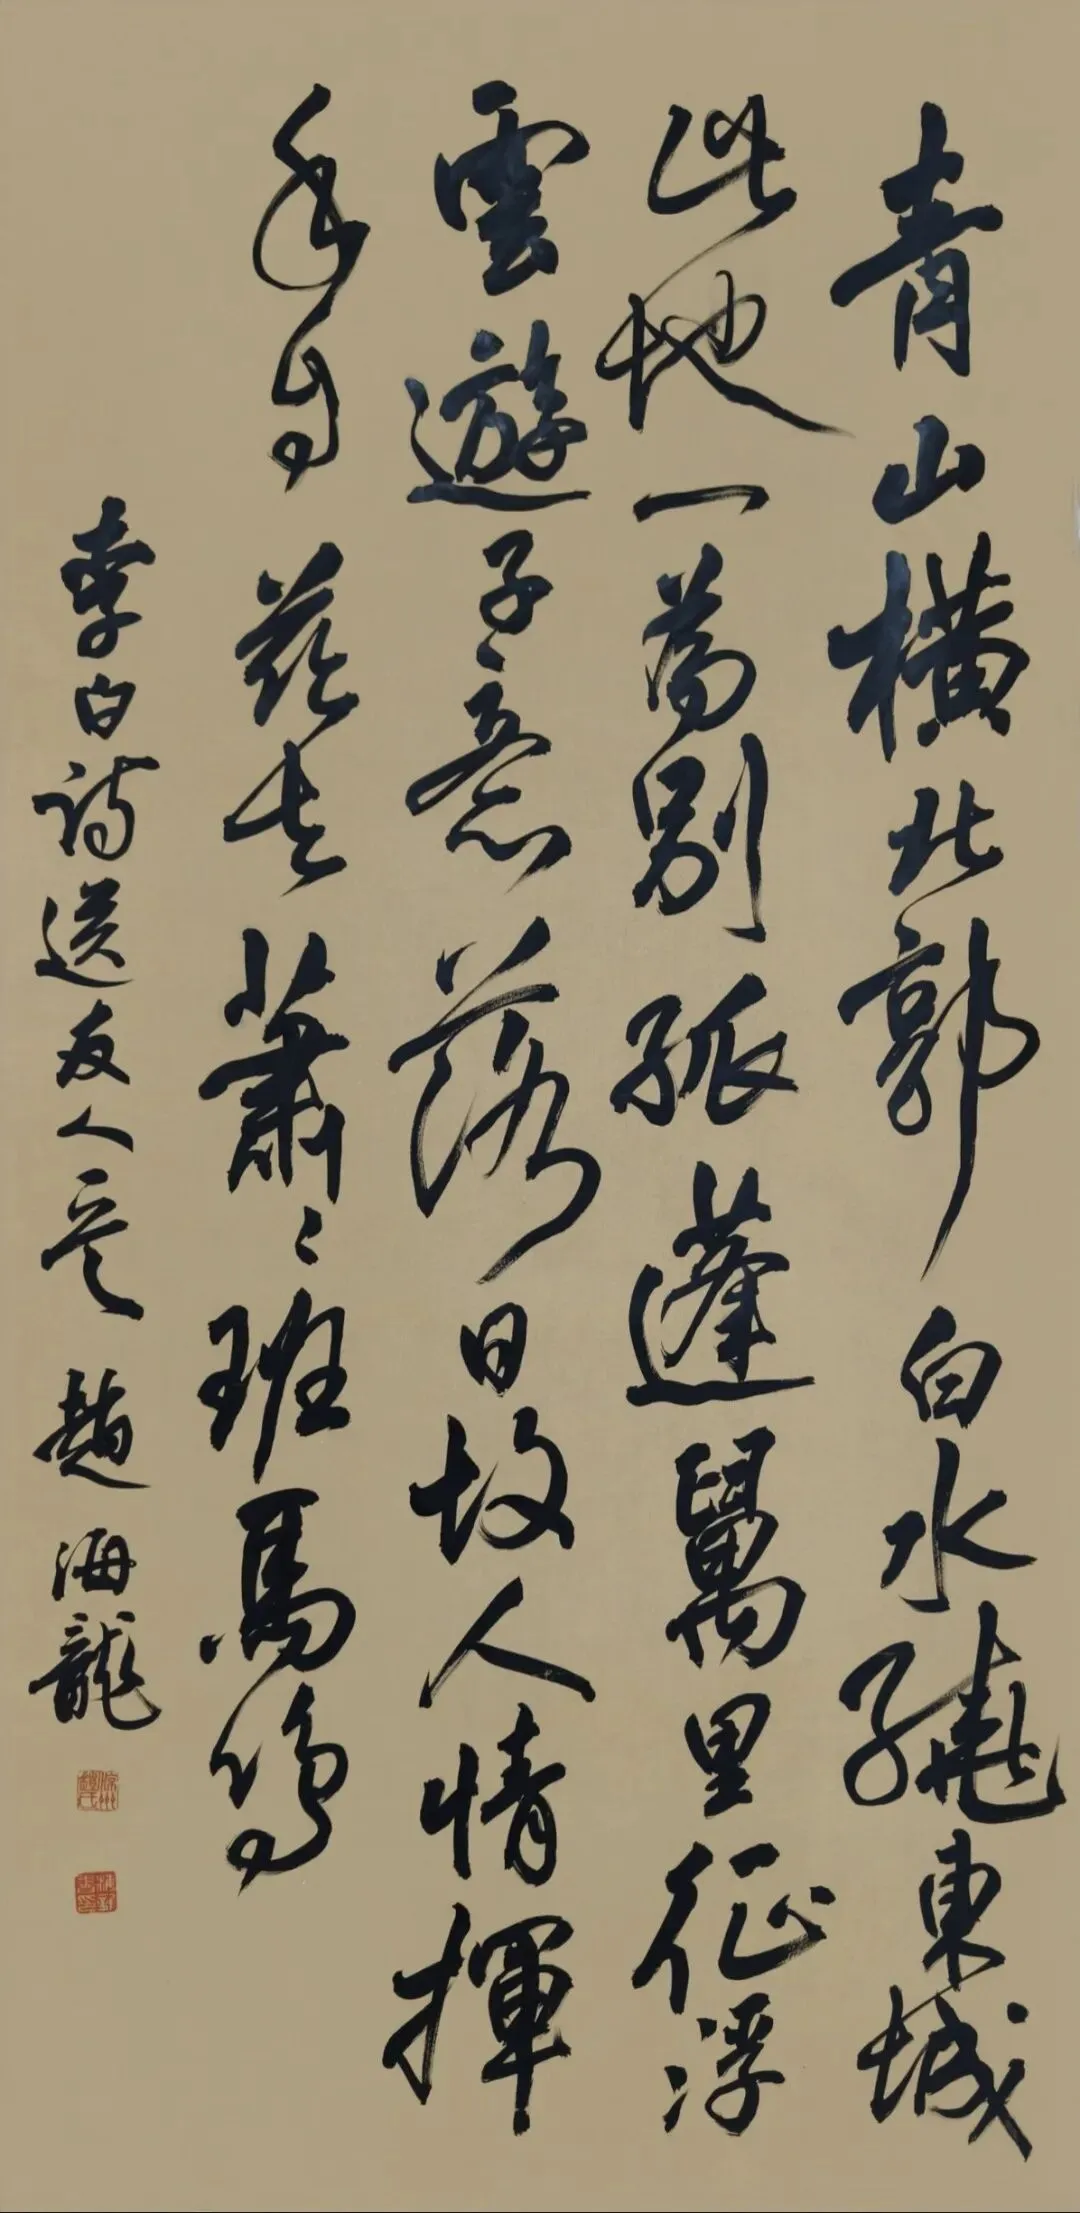 青山橫北郭白水繞東城
此地一為別孤蓬萬里征浮
雲遊子意落日故人情揮
手自茲去蕭〻班馬鳴
李白詩送友人意趙海龍